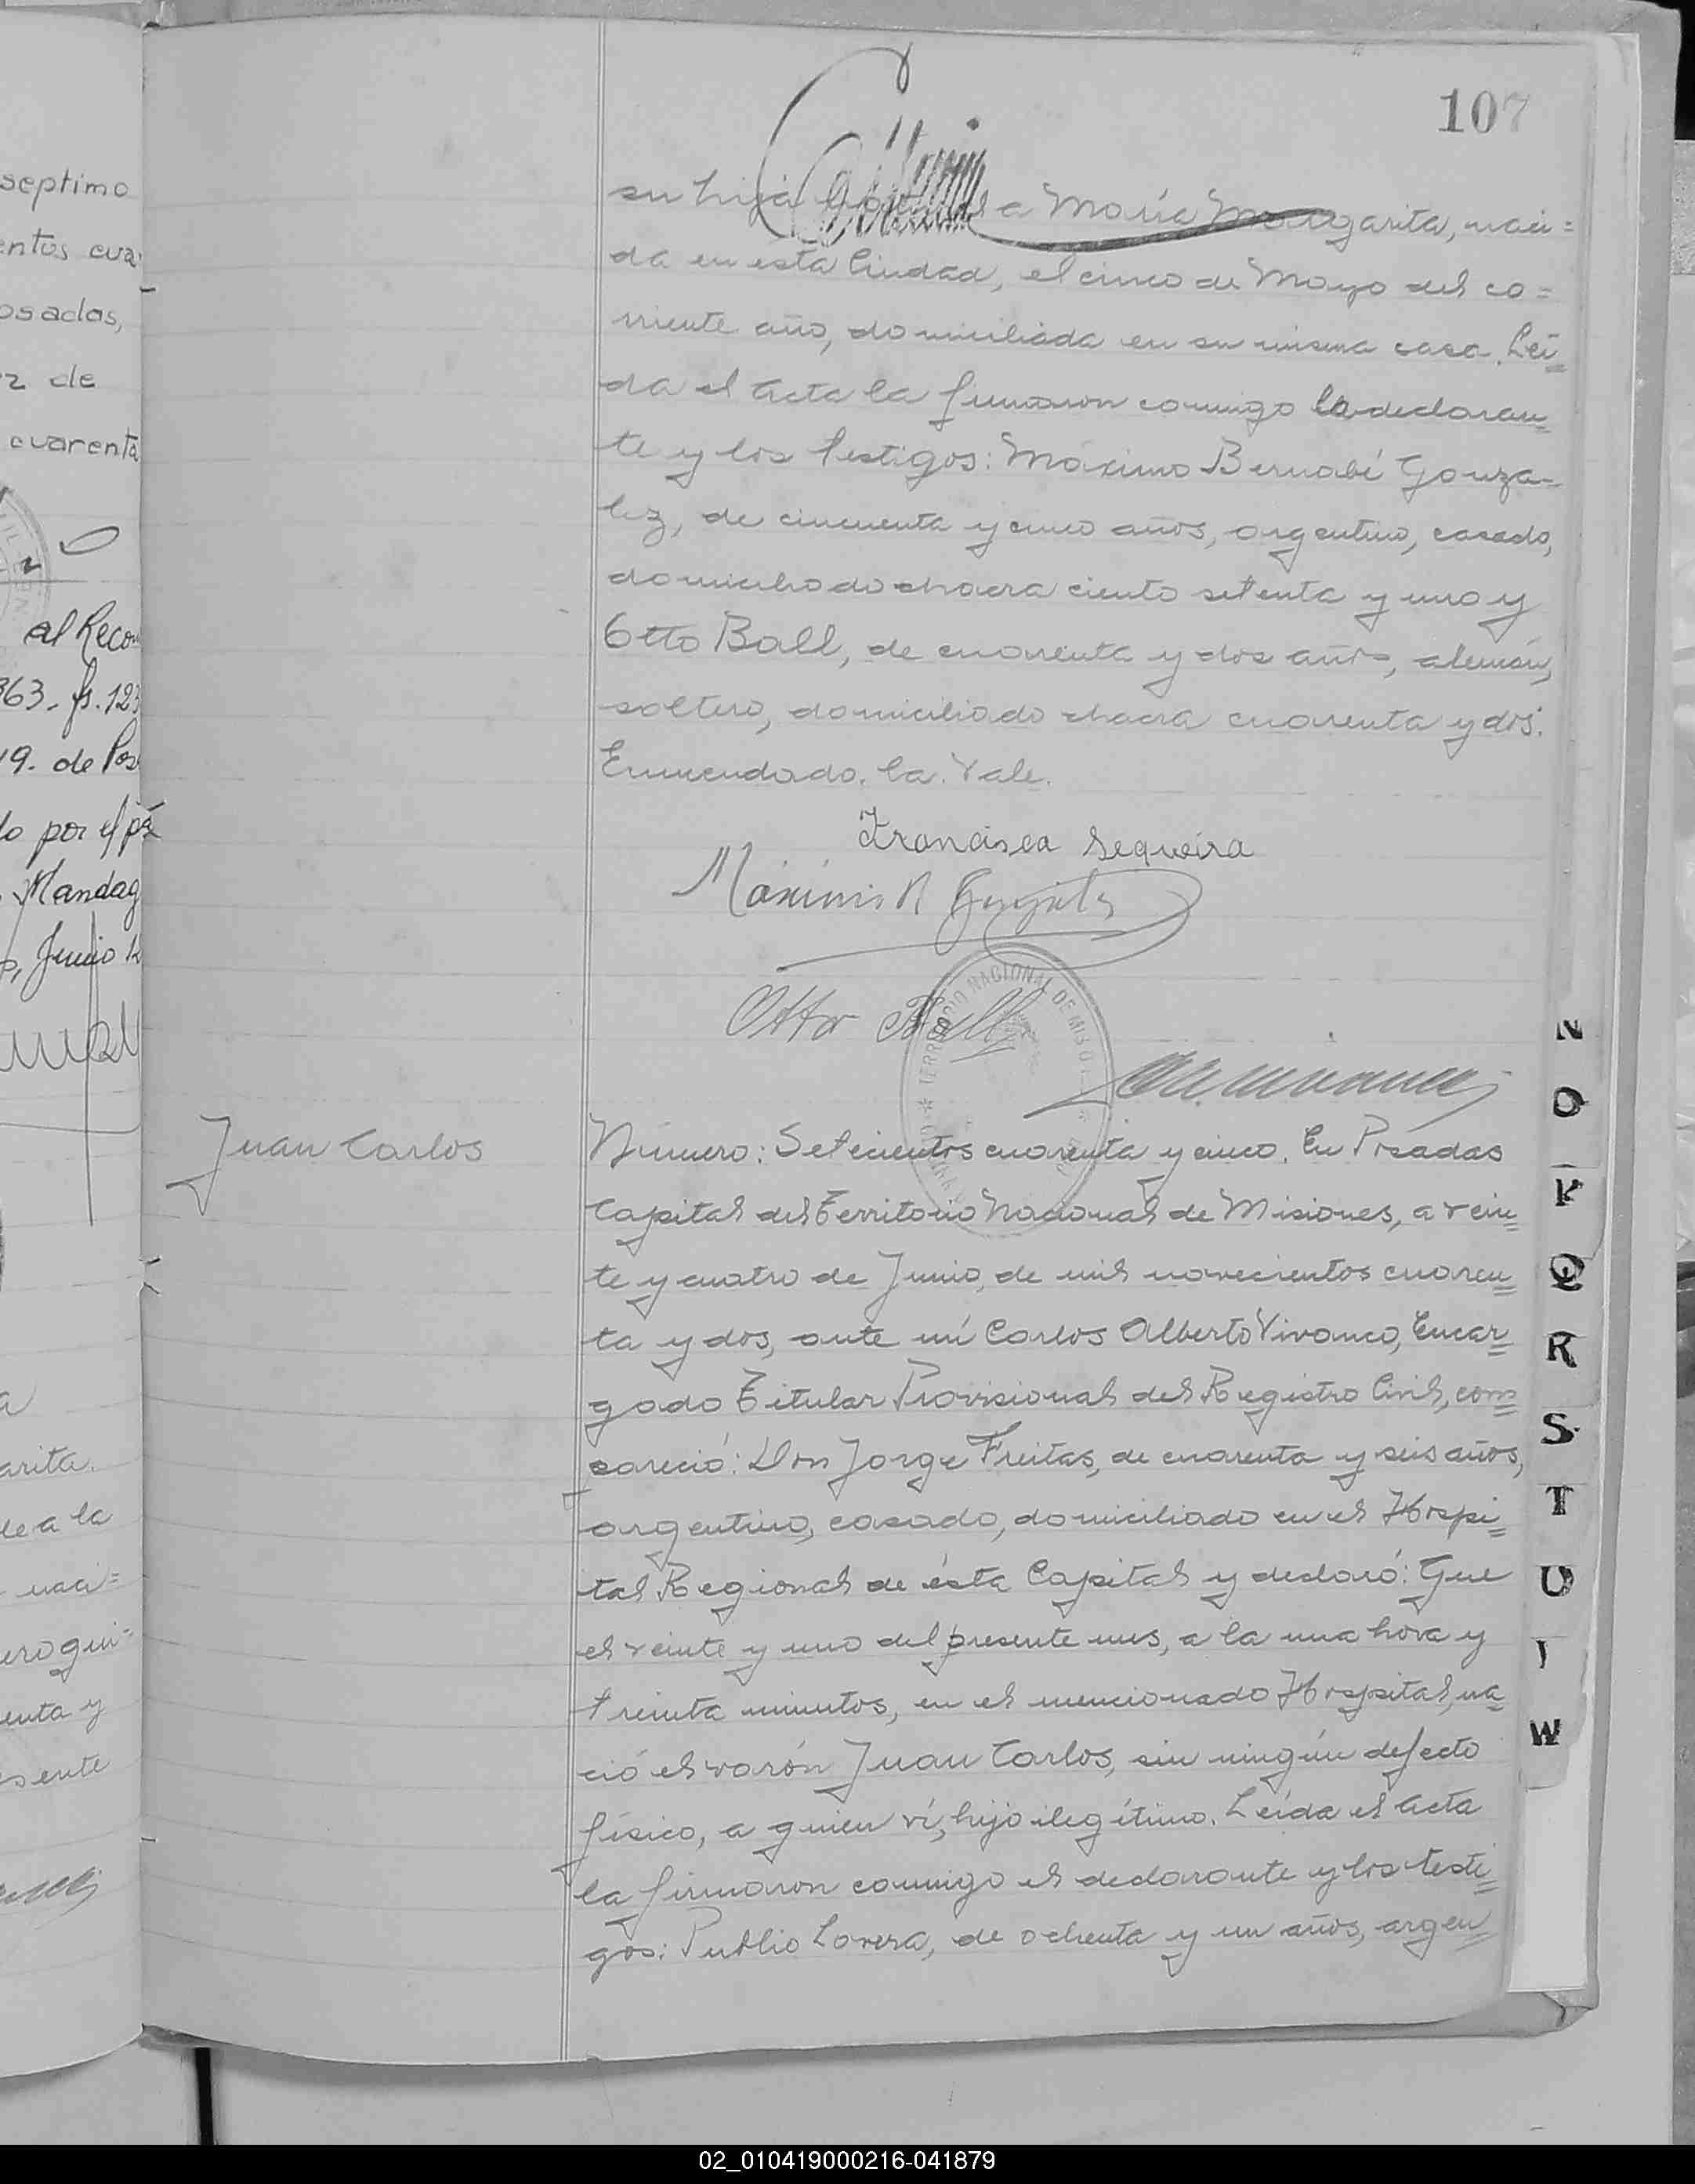 107
septimo
entos cua
osadas,
z de
cuarenta
al Reco
363. fs. 123
19. de Pos
do por el
Mandag
Junio
arita.
de a la
naci=
ero qui=
enta y
esente
su hija a María Margarita, naci=
da en esta Ciudad, el cinco de Mayo del co=
rriente año, domiciliada en su misma casa. Leí=
da el acta la firmaron conmigo la declaran=
te y los testigos: Máximo Bernabé Gonza-
lez, de cincuenta y cinco años, argentino, casado,
domiciliado chacra ciento setenta y uno y
Otto Ball, de cuarenta y dos años, alemán,
soltero, domiciliado chacra cuarenta y dos.
Enmendado. la. Vale.
Francisca Sequeira
Máximo B González
Otto Ball
TERRITORIO NACIONAL DE MISIONES
Juan Carlos
Número: Setecientos cuarenta y cinco. En Posadas
Capital del Territorio Nacional de Misiones, a vein=
te y cuatro de Junio, de mil novecientos cuaren=
ta y dos, ante mí Carlos Alberto Vivanco, Encar=
gado Titular Provisional del Registro Civil, com=
pareció: Don Jorge Freitas, de cuarenta y seis años,
argentino, casado, domiciliado en el Hospi=
tal Regional de ésta Capital y declaró: Que
el veinte y uno del presente mes, a la una hora y
treinta minutos, en el mencionado Hospital, na=
ció el varón Juan Carlos, sin ningún defecto
físico, a quien ví, hijo ilegítimo. Leída el acta
la firmaron conmigo el declarante y los testi=
gos: Publio Lovera, de ochenta y un años, argen=
N
O
P
Q
R
S
T
U
W
02_010419000216-041879